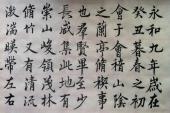 永和九年歲在
癸丑暮春之初
會于會稽山陰
之蘭亭脩稧事
也群賢畢至少
長咸集此地有
崇山峻嶺茂林
脩竹又有清流
激湍暎帶左右